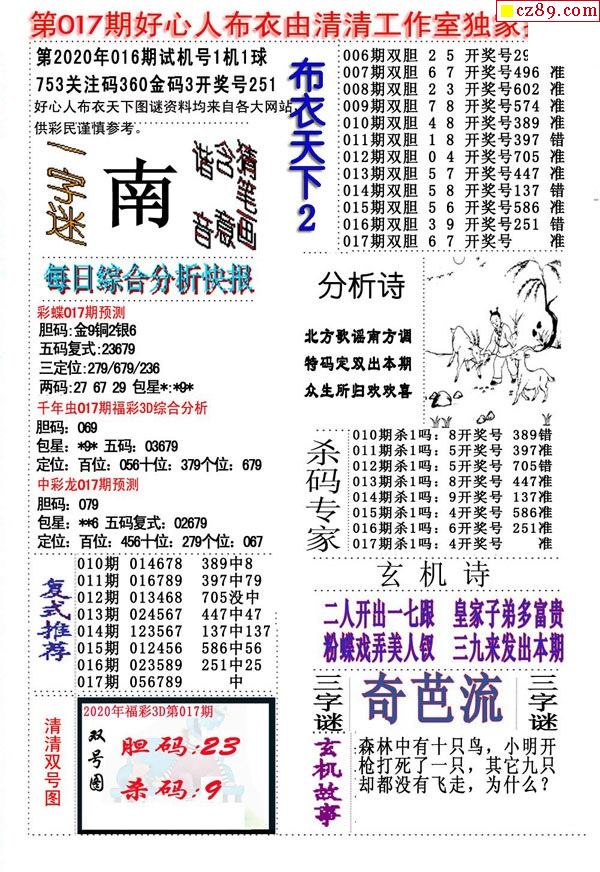 cz89.com
第017期好心人布衣由清清工作室独家
第2020年016期试机号1机1球
753关注码360金码3开奖号251
好心人布衣天下图谜资料均来自各大网站
供彩民谨慎参考。
一字迷
南
谐音
含意
猜笔画
每日综合分析快报
彩蝶017期预测
胆码:金9铜2银6
五码复式:23679
三定位:279/679/236
两码:27 67 29 包星*:*9*
千年虫017期福彩3D综合分析
胆码: 069
包星: *9* 五码: 03679
定位: 百位: 056十位: 379个位: 679
中彩龙017期预测
胆码: 079
包星: **6 五码复式: 02679
定位: 百位: 456十位: 279个位: 067
复式推荐
010期 014678 389中8
011期 016789 397中79
012期 013468 705没中
013期 024567 447中47
014期 123567 137中137
015期 012456 586中56
016期 023589 251中25
017期 056789 中
清清双号图
2020年福彩3D第017期
双号图
胆码:23
杀码:9
布衣天下2
006期双胆 2 5 开奖号29
007期双胆 6 7 开奖号496 准
008期双胆 2 3 开奖号602 准
009期双胆 7 8 开奖号574 准
010期双胆 4 8 开奖号389 准
011期双胆 1 8 开奖号397 错
012期双胆 0 4 开奖号705 准
013期双胆 5 7 开奖号447 准
014期双胆 5 8 开奖号137 错
015期双胆 5 6 开奖号586 准
016期双胆 3 9 开奖号251 错
017期双胆 6 7 开奖号 准
分析诗
北方歌谣南方调
特码定双出本期
众生所归欢欢喜
杀码专家
010期杀1吗: 8开奖号 389错
011期杀1吗: 5开奖号 397准
012期杀1吗: 5开奖号 705错
013期杀1吗: 8开奖号 447准
014期杀1吗: 9开奖号 137准
015期杀1吗: 4开奖号 586准
016期杀1吗: 6开奖号 251准
017期杀1吗: 4开奖号 准
玄机诗
二人开出一七跟 皇家子弟多富贵
粉蝶戏弄美人钗 三九来发出本期
三字谜
奇芭流
三字谜
玄机故事
森林中有十只鸟，小明开
枪打死了一只，其它九只
却都没有飞走，为什么？